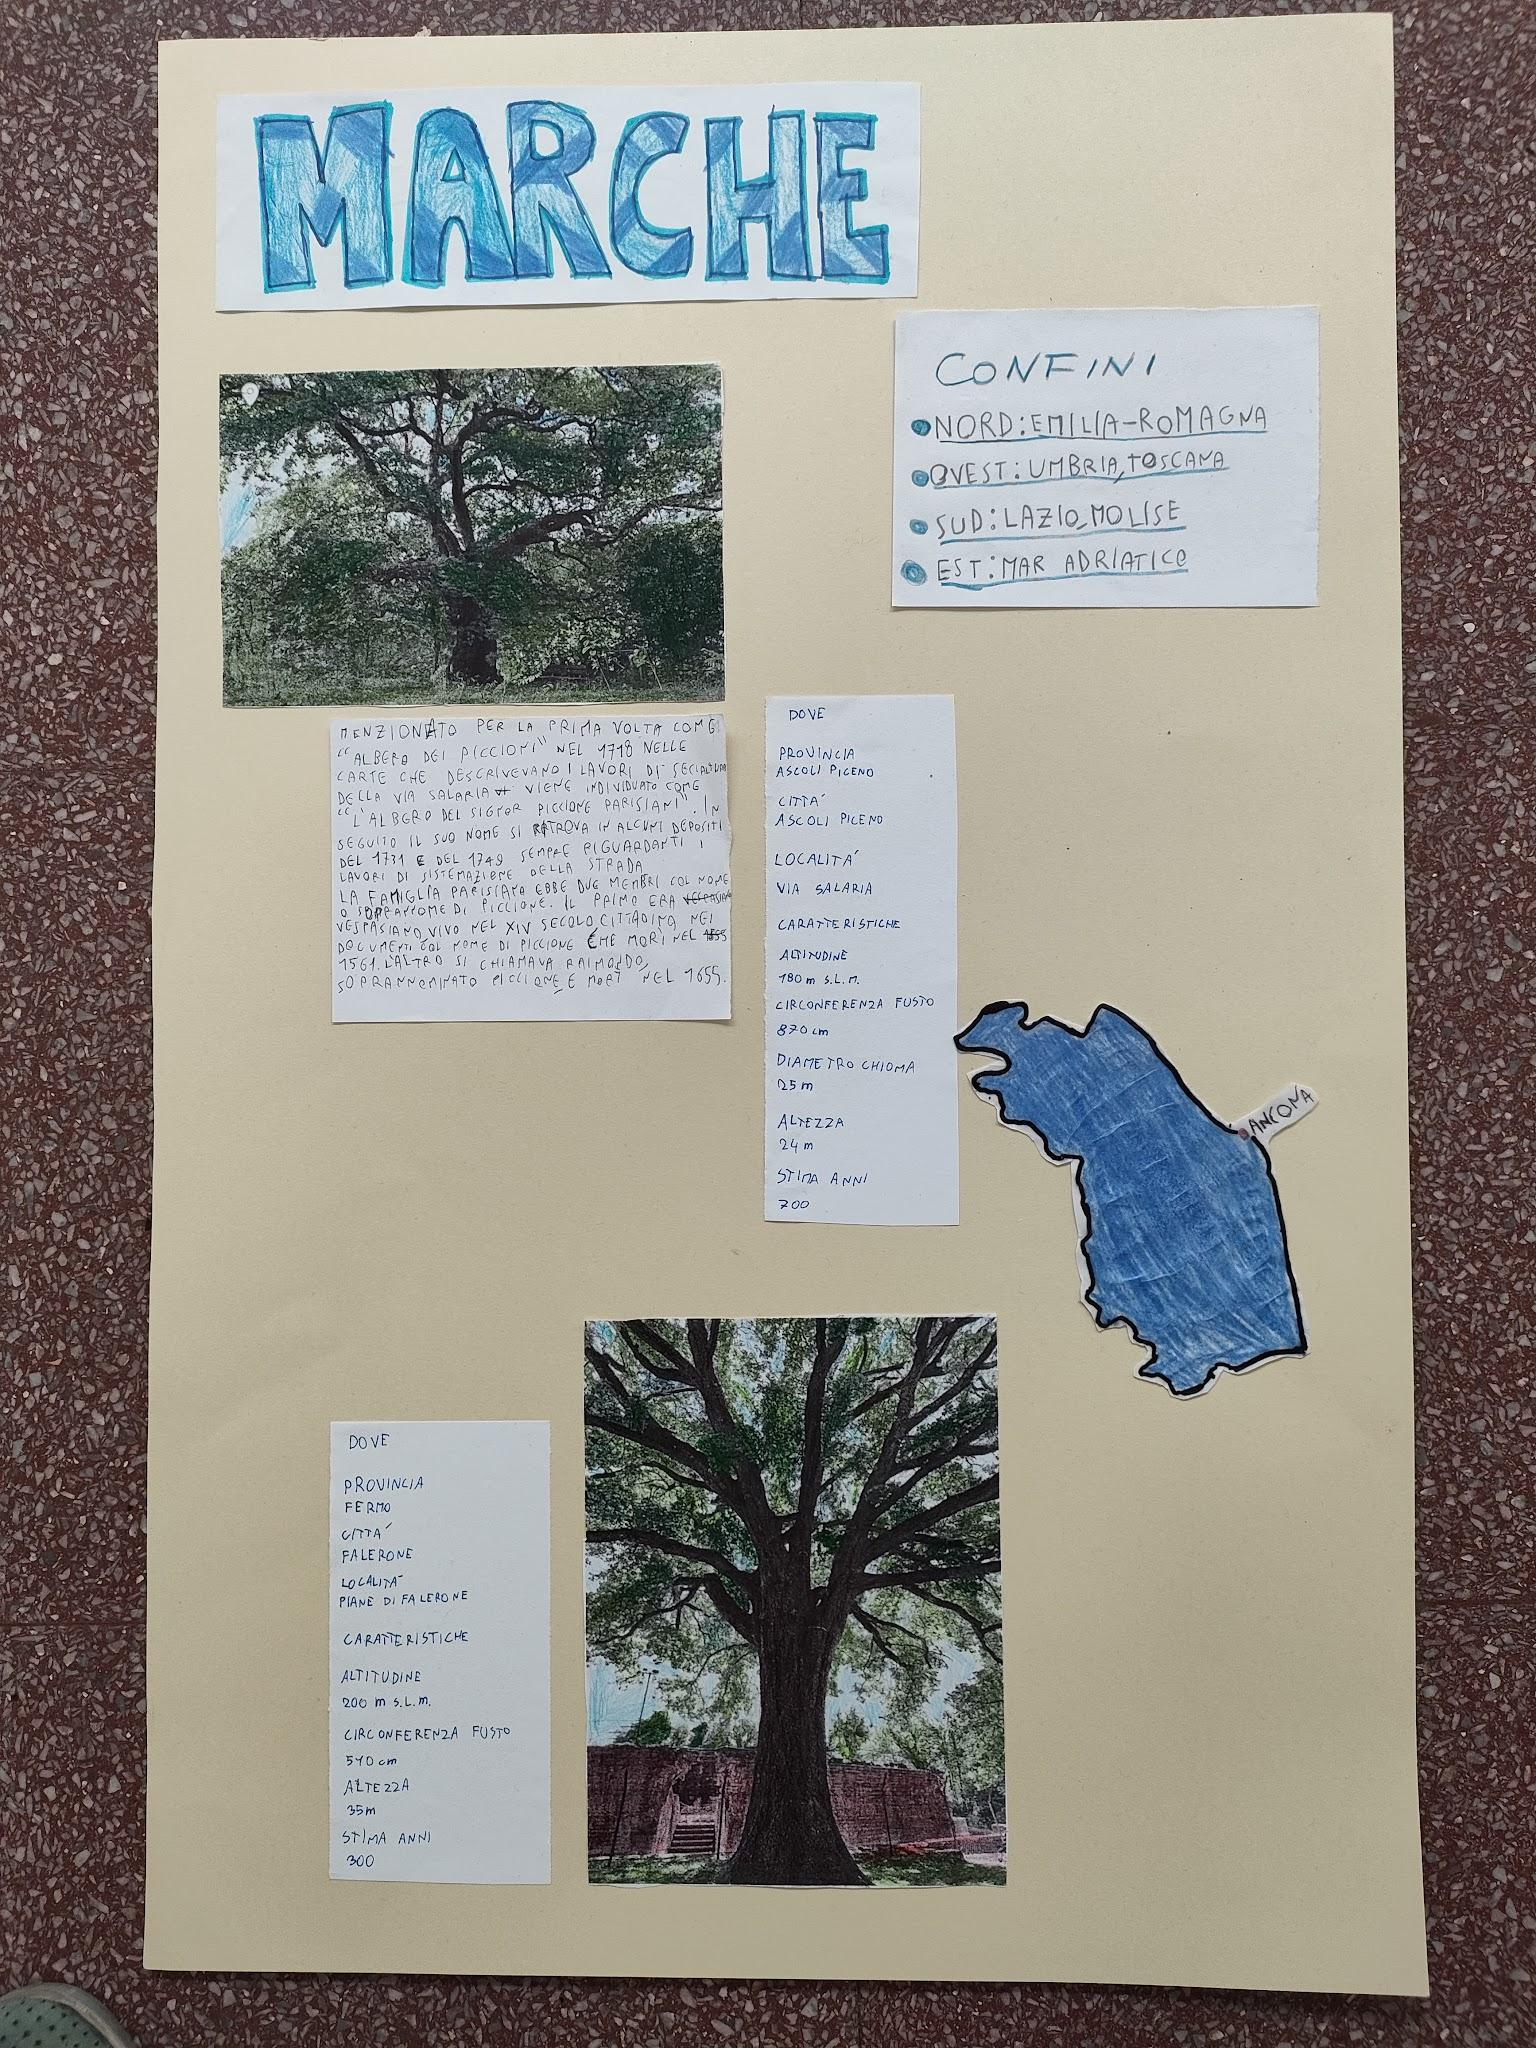 MARCHE
CONFINI
NORD: EMILIA-ROMAGNA
OVEST: UMBRIA, TOSCANA
SUD: LAZIO, MOLISE
EST: MAR ADRIATICO
MENZIONATO PER LA PRIMA VOLTA COME
"ALBERO DEI PICCIONI" NEL 1718 NELLE
CARTE CHE DESCRIVEVANO I LAVORI DI
DELLA VIA SALARIA VIENE INDIVIDUATO COME
"L'ALBERO DEL SIGNOR PICCIONE PARISIANI". IN
SEGUITO IL SUO NOME SI RITROVA IN ALCUNI DEPOSITI
DEL 1731 E DEL 1749 SEMPRE RIGUARDANTI I
LAVORI DI SISTEMAZIONE DELLA STRADA
LA FAMIGLIA PARISIANA EBBE DUE MEMBRI COL NOME
O SOPRANNOME DI PICCIONE. IL PRIMO ERA
VESPASIANO, VIVO NEL XIV SECOLO CITTADINO NEI
DOCUMENTI COL NOME DI PICCIONE CHE MORÌ NEL
1561. L'ALTRO SI CHIAMAVA RAIMONDO,
SOPRANNOMINATO PICCIONE E MORÌ NEL 1655.
DOVE
PROVINCIA
ASCOLI PICENO
CITTÀ
ASCOLI PICENO
LOCALITÀ
VIA SALARIA
CARATTERISTICHE
ALTITUDINE
180 m S.L.M.
CIRCONFERENZA FUSTO
870 cm
DIAMETRO CHIOMA
25 m
ALTEZZA
24 m
STIMA ANNI
700
ANCONA
DOVE
PROVINCIA
FERMO
CITTÀ
FALERONE
LOCALITÀ
PIANE DI FALERONE
CARATTERISTICHE
ALTITUDINE
200 m S.L.M.
CIRCONFERENZA FUSTO
540 cm
ALTEZZA
35 m
STIMA ANNI
300